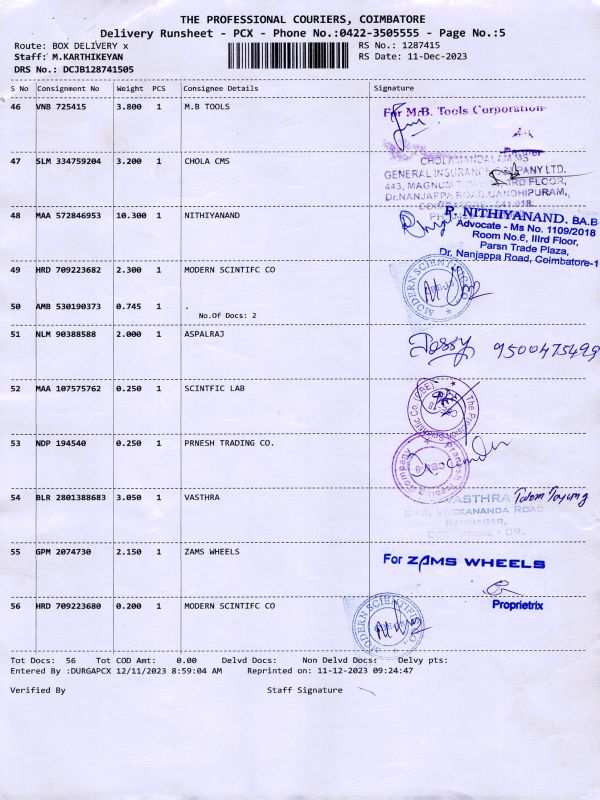 THE PROFESSIONAL COURIERS, COIMBATORE
Delivery Runsheet - PCX - Phone No.:0422-3505555 - Page No.:5
Route: BOX DELIVERY x RS No.: 1287415
Staff: M.KARTHIKEYAN RS Date: 11-Dec-2023
DRS No.: DCJB128741505
S No Consignment No Weight PCS Consignee Details Signature
46 VNB 725415 3.800 1 M.B TOOLS
For M.B. Tools Corporation
47 SLM 334759204 3.200 1 CHOLA CMS
CHOLAMANDALAM MS
GENERAL INSURANCE COMPANY LTD.
443, MAGNUM FLOOR,
Dr.NANJAPPA ROAD, GANDHIPURAM,
COIMBATORE - 641 018.
48 MAA 572846953 10.300 1 NITHIYANAND
P. NITHIYANAND. BA.B
Advocate - Ms No. 1109/2018
Room No.6, IIIrd Floor,
Parsn Trade Plaza,
Dr. Nanjappa Road, Coimbatore-1
49 HRD 709223682 2.300 1 MODERN SCINTIFC CO
MODERN SCIENTIFIC
50 AMB 530190373 0.745 1 .
No.Of Docs: 2
51 NLM 90388588 2.000 1 ASPALRAJ
9500475499
52 MAA 107575762 0.250 1 SCINTFIC LAB
53 NDP 194540 0.250 1 PRNESH TRADING CO.
54 BLR 2801388683 3.050 1 VASTHRA
VASTHRA
VIVEKANANDA ROAD
RAMNAGAR,
COIMBATORE - 09.
55 GPM 2074730 2.150 1 ZAMS WHEELS
For ZAMS WHEELS
Proprietrix
56 HRD 709223680 0.200 1 MODERN SCINTIFC CO
MODERN SCIENTIFIC
Tot Docs: 56 Tot COD Amt: 0.00 Delvd Docs: Non Delvd Docs: Delvy pts:
Entered By :DURGAPCX 12/11/2023 8:59:04 AM Reprinted on: 11-12-2023 09:24:47
Verified By Staff Signature